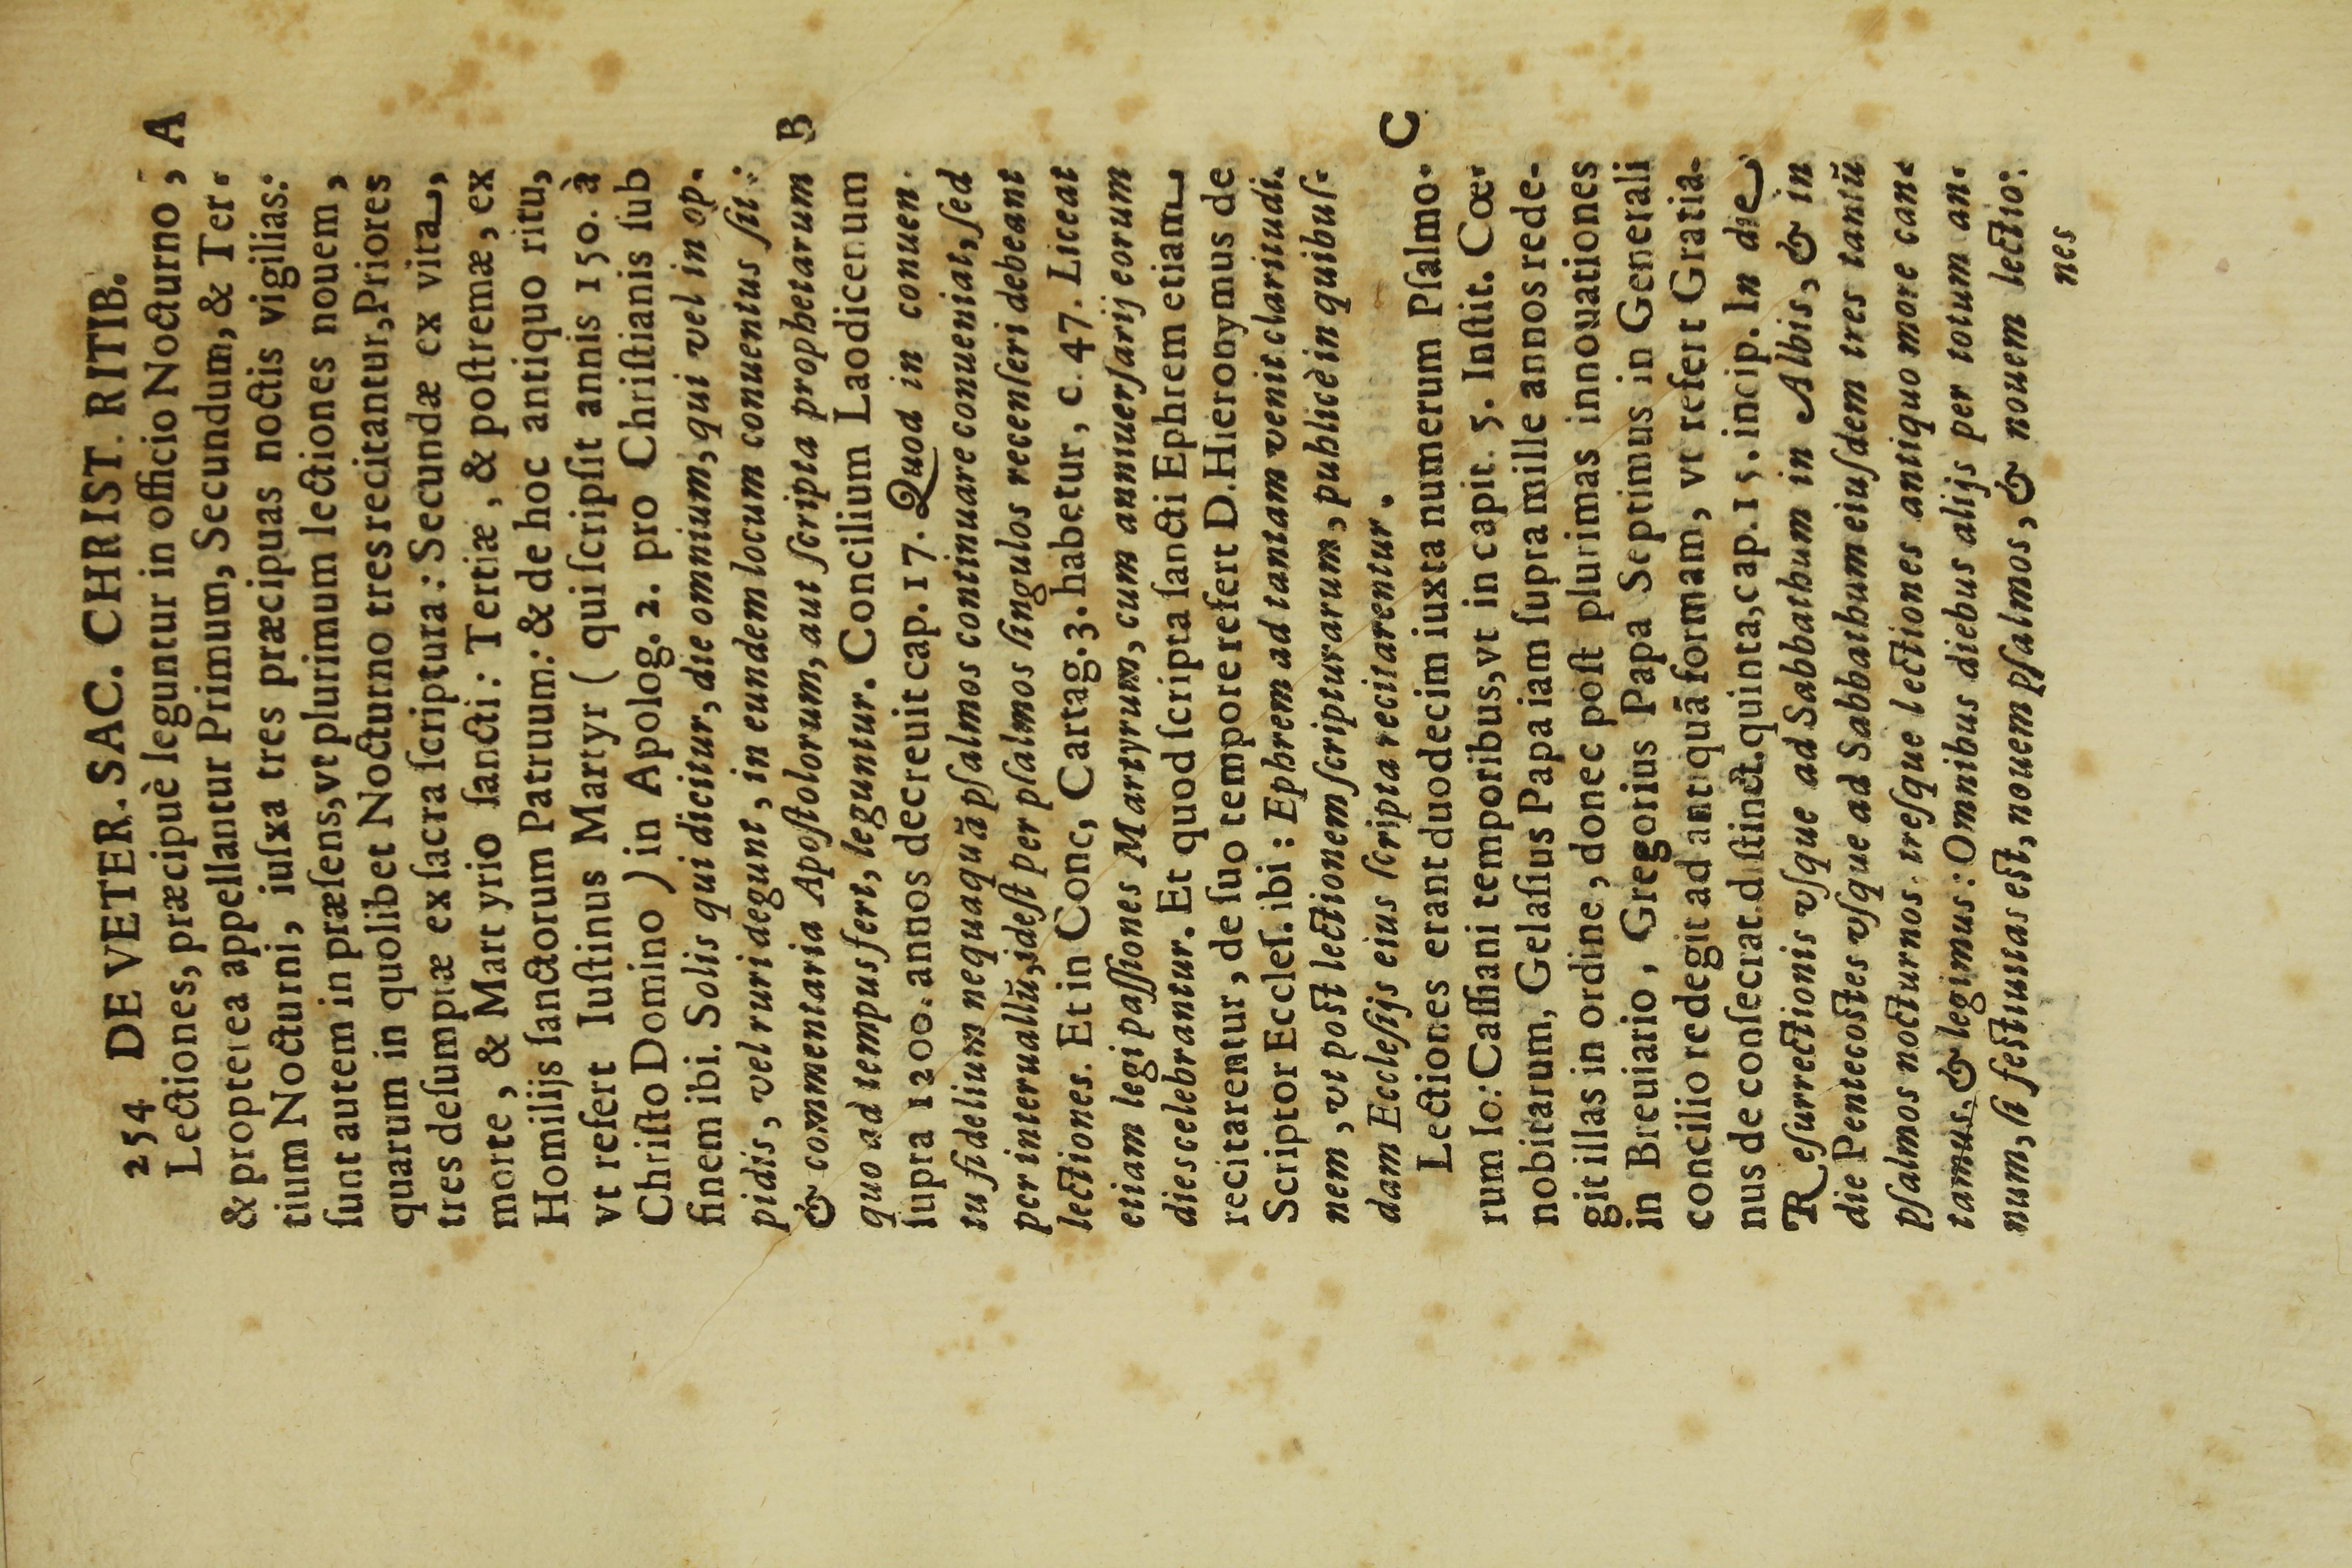 254 DE VETER. SAC. CHRIST. RITIB.
Lectiones, præcipuè leguntur in officio Nocturno, A
& propterea appellantur Primum, Secundum, & Ter-
tium Nocturni, iuſxa tres præcipuas noctis vigilias:
ſunt autem in præſens, vt plurimum lectiones nouem,
quarum in quolibet Nocturno tres recitantur, Priores
tres deſumptæ ex ſacra ſcriptura: Secundæ ex vita,
morte, & Martyrio ſancti: Tertiæ, & poſtremæ, ex
Homilijs ſanctorum Patruum: & de hoc antiquo ritu,
vt refert Iuſtinus Martyr ( qui ſcripſit annis 150. à
Chriſto Domino ) in Apolog. 2. pro Chriſtianis ſub
finem ibi. Solis qui dicitur, die omnium, qui vel in op-
pidis, vel ruri degunt, in eundem locum conuentus ſit:
& commentaria Apoſtolorum, aut ſcripta prophetarum B
quo ad tempus fert, leguntur. Concilium Laodicenum
ſupra 1200. annos decreuit cap. 17. Quod in conuen-
tu fidelium nequaquā pſalmos continuare conueniat, ſed
per interuallū, ideſt per pſalmos ſingulos recenſeri debeant
lectiones. Et in Conc, Cartag. 3. habetur, c. 47. Liceat
etiam legi paſſiones Martyrum, cum anniuerſarij eorum
dies celebrantur. Et quod ſcripta ſancti Ephrem etiam
recitarentur, de ſuo tempore refert D. Hieronymus de
Scriptor Eccleſ. ibi: Ephrem ad tantam venit claritudi-
nem, vt poſt lectionem ſcripturarum, publicè in quibuſ-
dam Eccleſijs eius ſcripta recitarentur. C
Lectiones erant duodecim iuxta numerum Pſalmo-
rum Io: Caſſiani temporibus, vt in capit. 5. Inſtit. Cœ-
nobitarum, Gelaſius Papa iam ſupra mille annos rede-
git illas in ordine, donec poſt plurimas innouationes
in Breuiario, Gregorius Papa Septimus in Generali
concilio redegit ad antiquā formam, vt refert Gratia-
nus de conſecrat. diſtinct. quinta, cap. 15. incip. In die
Reſurrectionis vſque ad Sabbathum in Albis, & in
die Pentecoſtes vſque ad Sabbathum eiuſdem tres tantū
pſalmos nocturnos. treſque lectiones antiquo more can-
tamus, & legimus: Omnibus diebus alijs per totum an-
num, ſi feſtiuitas eſt, nouem pſalmos, & nouem lectio-
nes